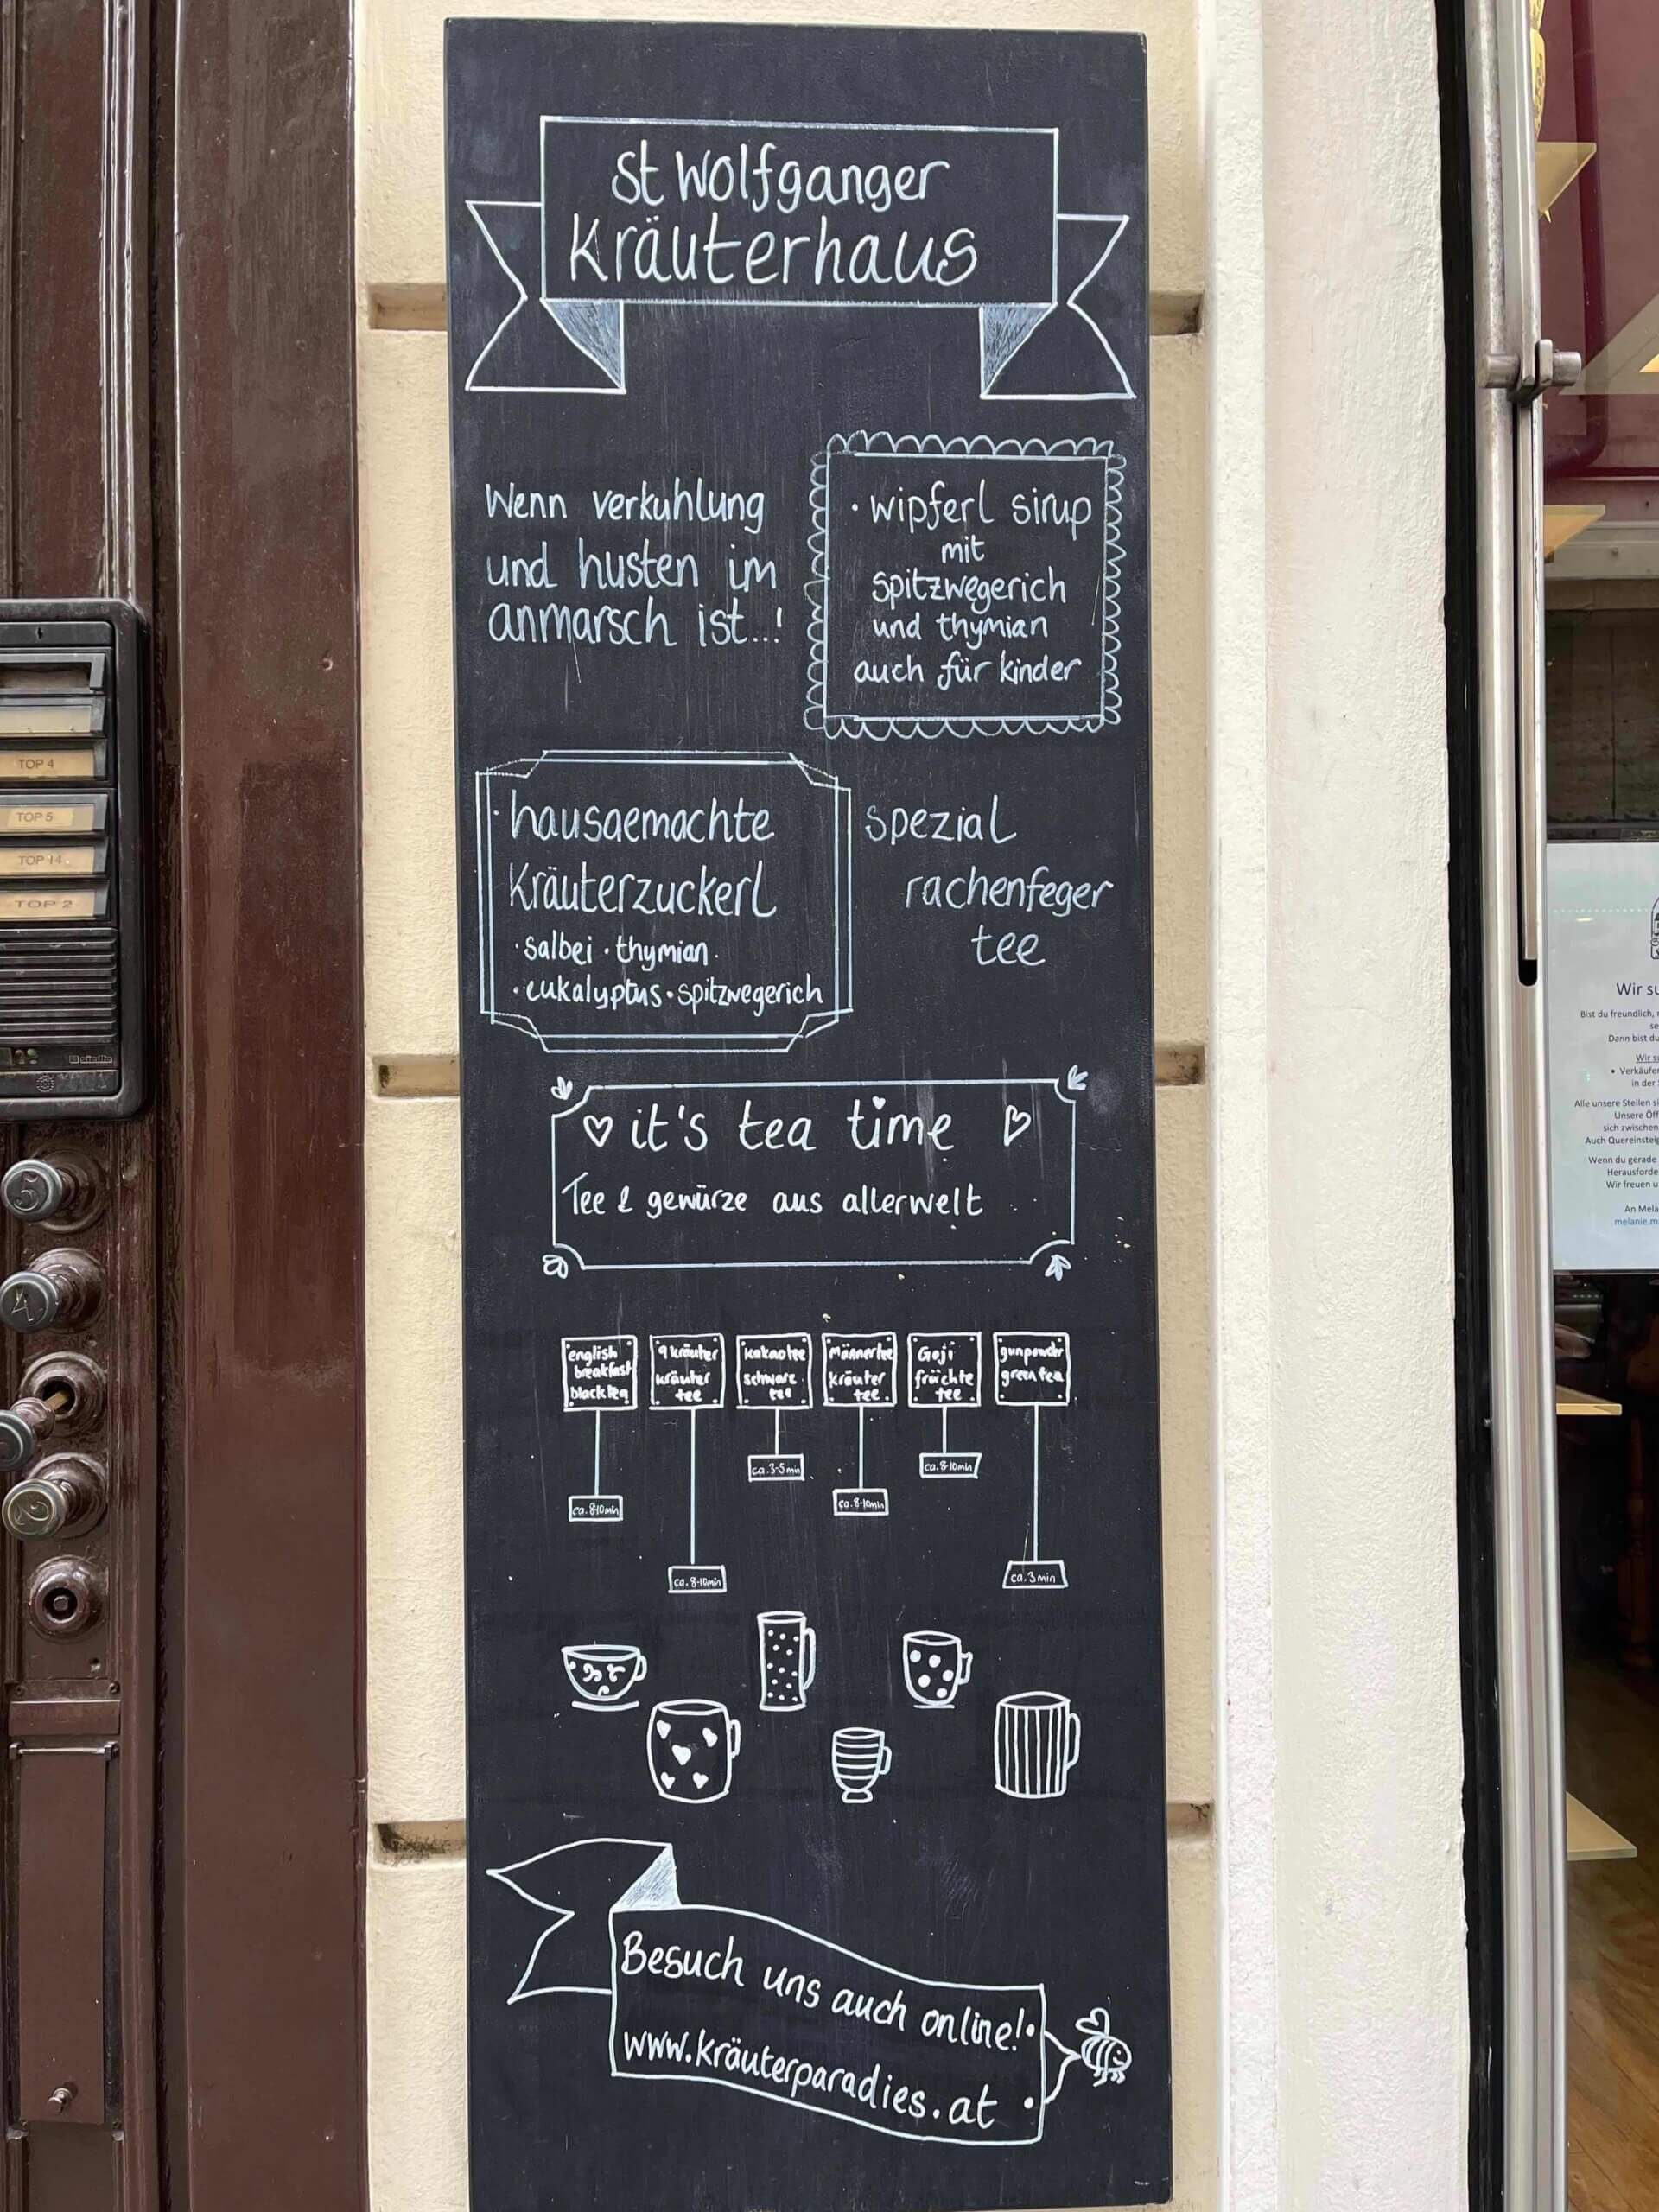 st Wolfganger
Kräuterhaus
Wenn verkuhlung
und husten im
anmarsch ist...!
· wipferl sirup
mit
spitzwegerich
und thymian
auch für kinder
· hausgemachte
Kräuterzuckerl
· salbei · thymian ·
· eukalyptus · spitzwegerich
spezial
rachenfeger
tee
♡ it's tea time ♡
Tee & gewürze aus allerwelt
english
breakfast
black tea
9 kräuter
kräuter
tee
kakaotee
schwarz
tee
Männertee
kräuter
tee
Goji
früchte
tee
gunpowder
green tea
ca. 3-5 min
ca. 8-10min
ca. 8-10min
ca. 8-10min
ca. 8-10min
ca. 3 min
Besuch uns auch online!
www.kräuterparadies.at
TOP 4
TOP 5
TOP 14
TOP 2
siedle
5
4
2
Wir su
Bist du freundlich,
se
Dann bist du
Wir su
• Verkäufer
in der
Alle unsere Stellen si
Unsere Öff
sich zwischen
Auch Quereinsteig
Wenn du gerade
Herausforde
Wir freuen u
An Mela
melanie.m